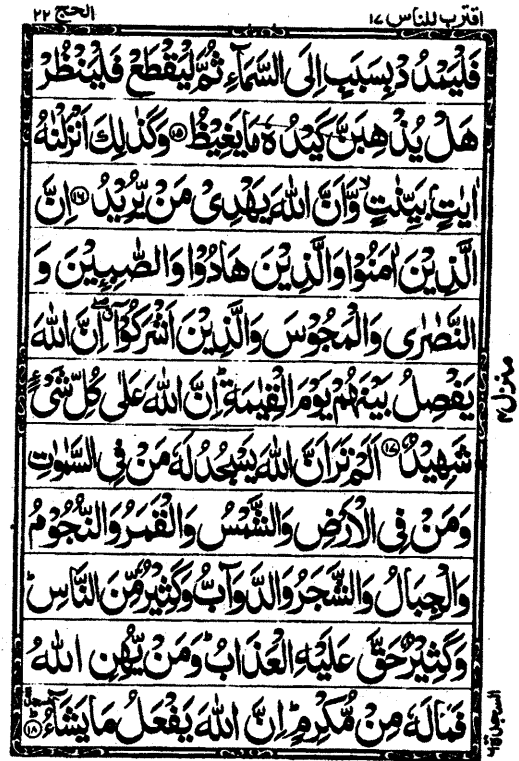 اقترب للناس ١٧
الحج ٢٢
فَلْیَمْدُدْ بِسَبَبٍ اِلَی السَّمَآءِ ثُمَّ لْیَقْطَعْ فَلْیَنْظُرْ
هَلْ یُذْهِبَنَّ كَیْدُهٗ مَا یَغِیْظُ ۝۱۵ وَكَذٰلِكَ اَنْزَلْنٰهُ
اٰیٰتٍۭ بَیِّنٰتٍ ۙ وَّاَنَّ اللّٰهَ یَهْدِیْ مَنْ یُّرِیْدُ ۝۱۶ اِنَّ
الَّذِیْنَ اٰمَنُوْا وَالَّذِیْنَ هَادُوْا وَالصّٰبِـِٕیْنَ وَ
النَّصٰرٰی وَالْمَجُوْسَ وَالَّذِیْنَ اَشْرَكُوْۤا ۖۗ اِنَّ اللّٰهَ
یَفْصِلُ بَیْنَهُمْ یَوْمَ الْقِیٰمَةِ ؕ اِنَّ اللّٰهَ عَلٰی كُلِّ شَیْءٍ
شَهِیْدٌ ۝۱۷ اَلَمْ تَرَ اَنَّ اللّٰهَ یَسْجُدُ لَهٗ مَنْ فِی السَّمٰوٰتِ
وَمَنْ فِی الْاَرْضِ وَالشَّمْسُ وَالْقَمَرُ وَالنُّجُوْمُ
وَالْجِبَالُ وَالشَّجَرُ وَالدَّوَآبُّ وَكَثِیْرٌ مِّنَ النَّاسِ ؕ
وَكَثِیْرٌ حَقَّ عَلَیْهِ الْعَذَابُ ؕ وَمَنْ یُّهِنِ اللّٰهُ
فَمَا لَهٗ مِنْ مُّكْرِمٍ ؕ اِنَّ اللّٰهَ یَفْعَلُ مَا یَشَآءُ ۝۱۸
منزل ۴
السجدة ۶